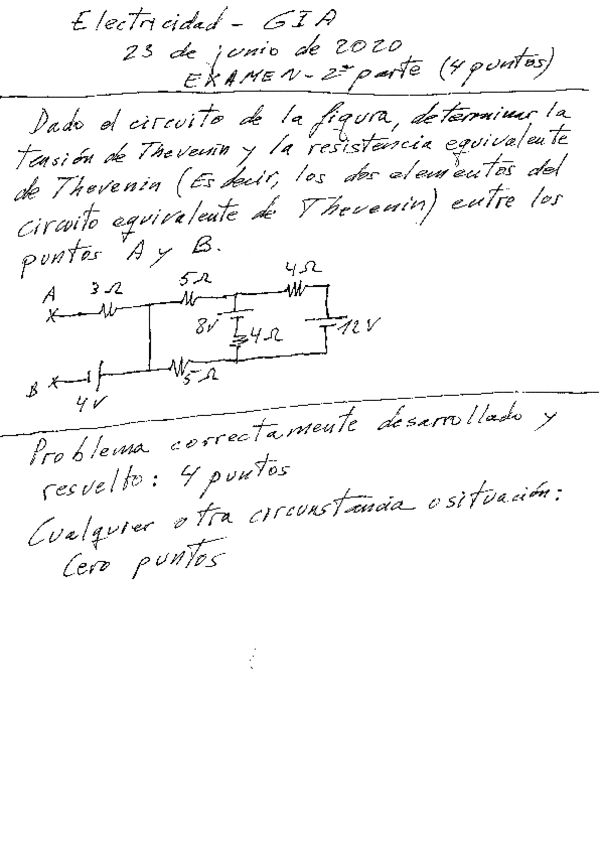 Electricidad - GIA
23 de junio de 2020
EXAMEN - 2ª parte (4 puntos)
Dado el circuito de la figura, determinar la
tensión de Thevenin y la resistencia equivalente
de Thevenin (Es decir, los dos elementos del
circuito equivalente de Thevenin) entre los
puntos A y B.
A 3Ω 5Ω 4Ω
8V 4Ω 12V
B 4V 5Ω
Problema correctamente desarrollado y
resuelto: 4 puntos
Cualquier otra circunstancia o situación:
Cero puntos